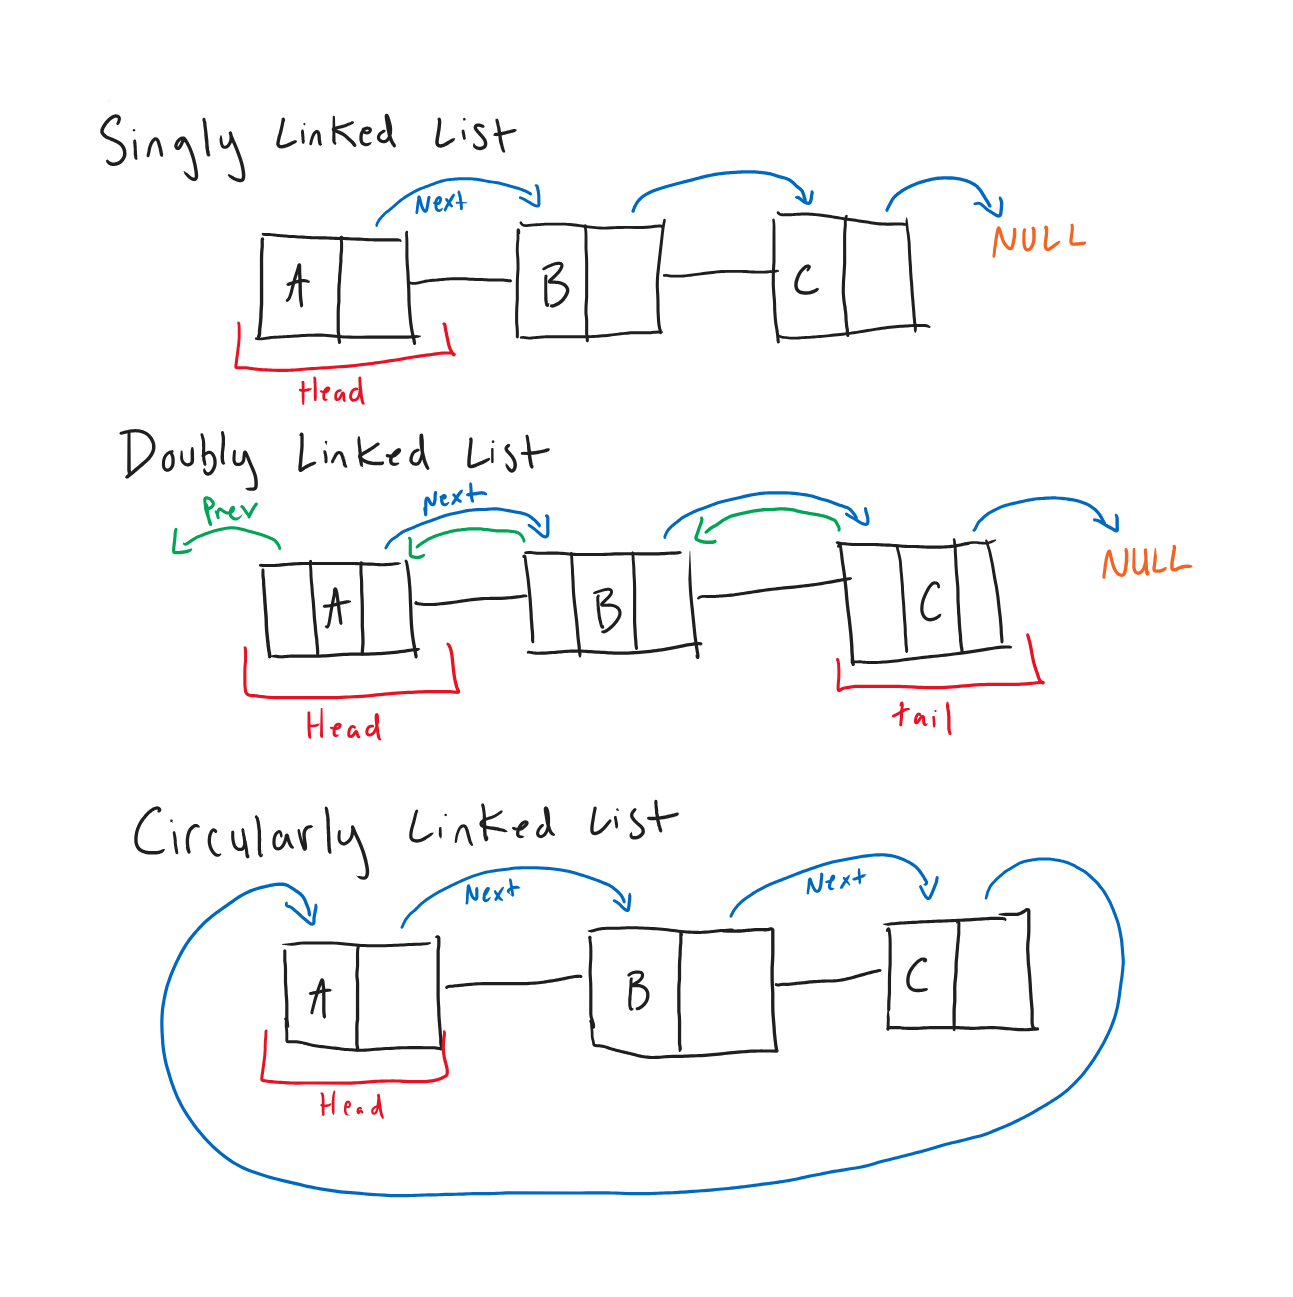 Singly Linked List
Next
NULL
A B C
Head
Doubly Linked List
Prev Next
NULL
A B C
Head tail
Circularly Linked List
Next Next
A B C
Head